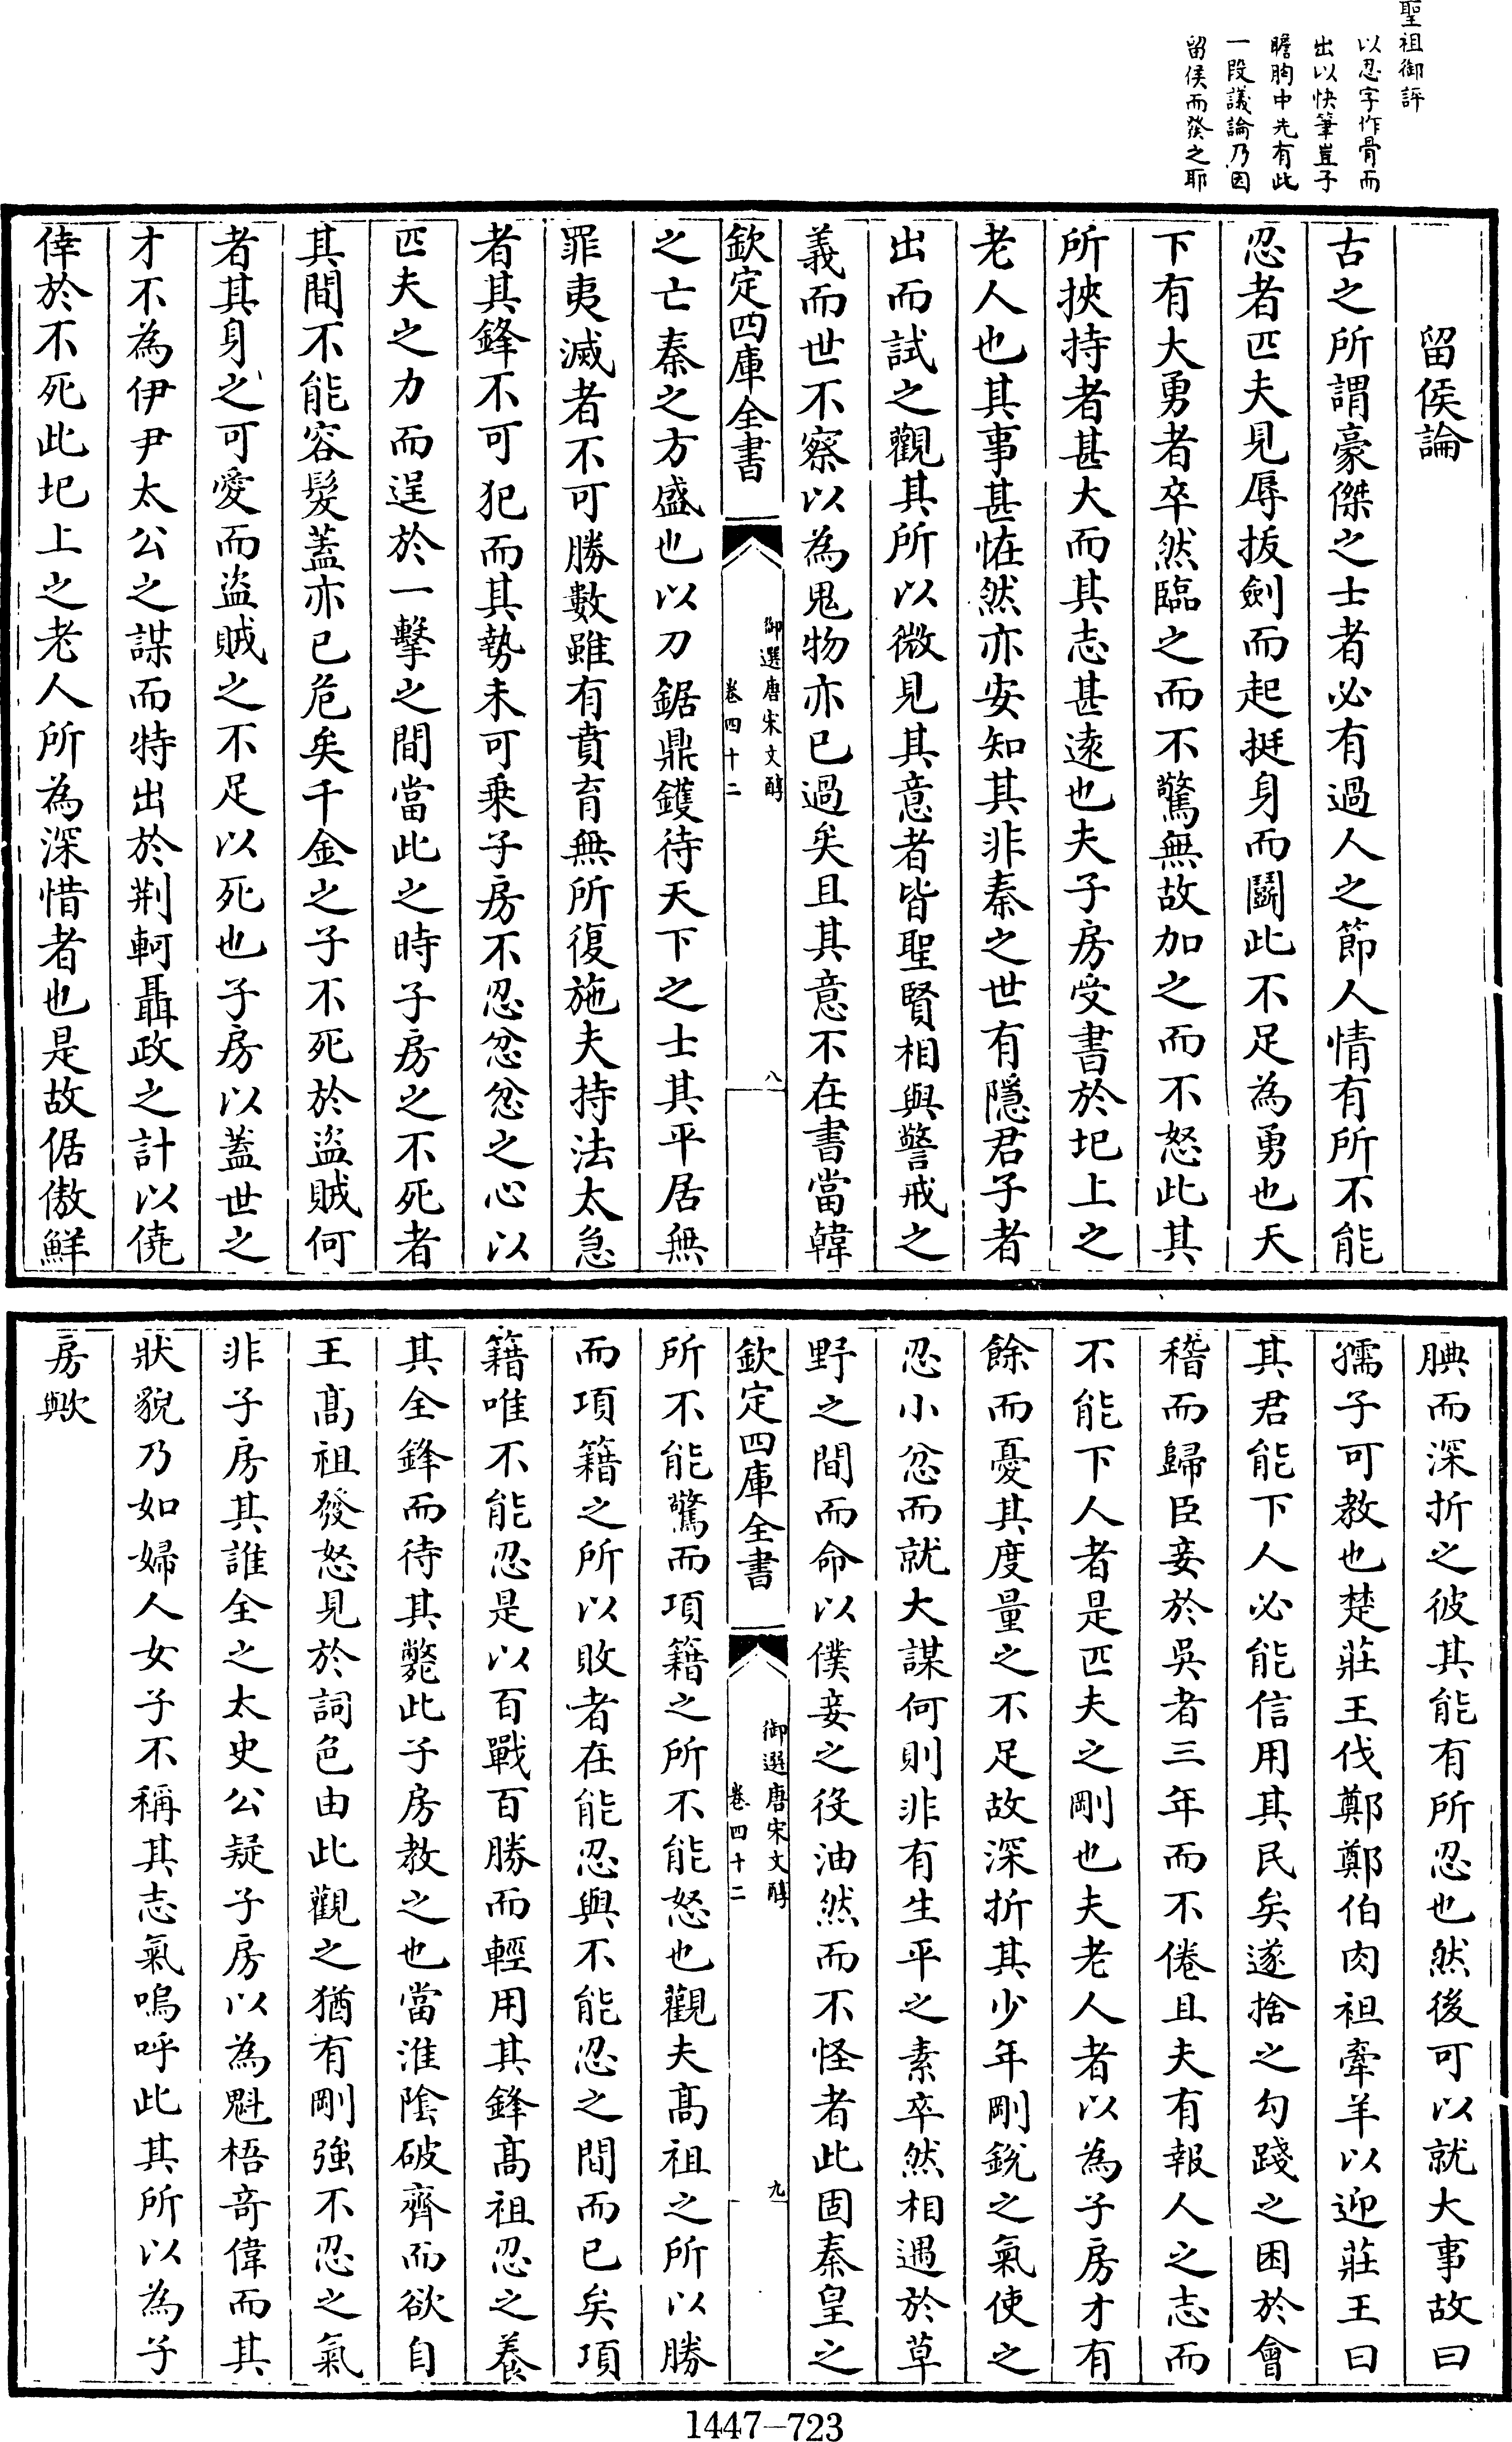 聖祖御評
以忍字作骨而
出以快筆豈子
瞻胸中先有此
一段議論乃因
留侯而發之耶
留侯論
古之所謂豪傑之士者必有過人之節人情有所不能
忍者匹夫見辱拔劍而起挺身而鬭此不足為勇也天
下有大勇者卒然臨之而不驚無故加之而不怒此其
所挾持者甚大而其志甚遠也夫子房受書於圯上之
老人也其事甚恠然亦安知其非秦之世有隱君子者
出而試之觀其所以微見其意者皆聖賢相與警戒之
義而世不察以為鬼物亦已過矣且其意不在書當韓
欽定四庫全書
御選唐宋文醇
卷四十二
八
之亡秦之方盛也以刀鋸鼎鑊待天下之士其平居無
罪夷滅者不可勝數雖有賁育無所復施夫持法太急
者其鋒不可犯而其勢未可乗子房不忍忿忿之心以
匹夫之力而逞於一擊之間當此之時子房之不死者
其間不能容髮蓋亦已危矣千金之子不死於盜賊何
者其身之可愛而盜賊之不足以死也子房以蓋世之
才不為伊尹太公之謀而特出於荆軻聶政之計以僥
倖於不死此圯上之老人所為深惜者也是故倨傲鮮
腆而深折之彼其能有所忍也然後可以就大事故曰
孺子可教也楚莊王伐鄭鄭伯肉袒牽羊以迎莊王曰
其君能下人必能信用其民矣遂捨之勾踐之困於會
稽而歸臣妾於吳者三年而不倦且夫有報人之志而
不能下人者是匹夫之剛也夫老人者以為子房才有
餘而憂其度量之不足故深折其少年剛銳之氣使之
忍小忿而就大謀何則非有生平之素卒然相遇於草
野之間而命以僕妾之役油然而不怪者此固秦皇之
欽定四庫全書
御選唐宋文醇
卷四十二
九
所不能驚而項籍之所不能怒也觀夫髙祖之所以勝
而項籍之所以敗者在能忍與不能忍之間而已矣項
籍唯不能忍是以百戰百勝而輕用其鋒髙祖忍之養
其全鋒而待其斃此子房教之也當淮陰破齊而欲自
王髙祖發怒見於詞色由此觀之猶有剛強不忍之氣
非子房其誰全之太史公疑子房以為魁梧竒偉而其
狀貌乃如婦人女子不稱其志氣嗚呼此其所以為子
房歟
1447—723